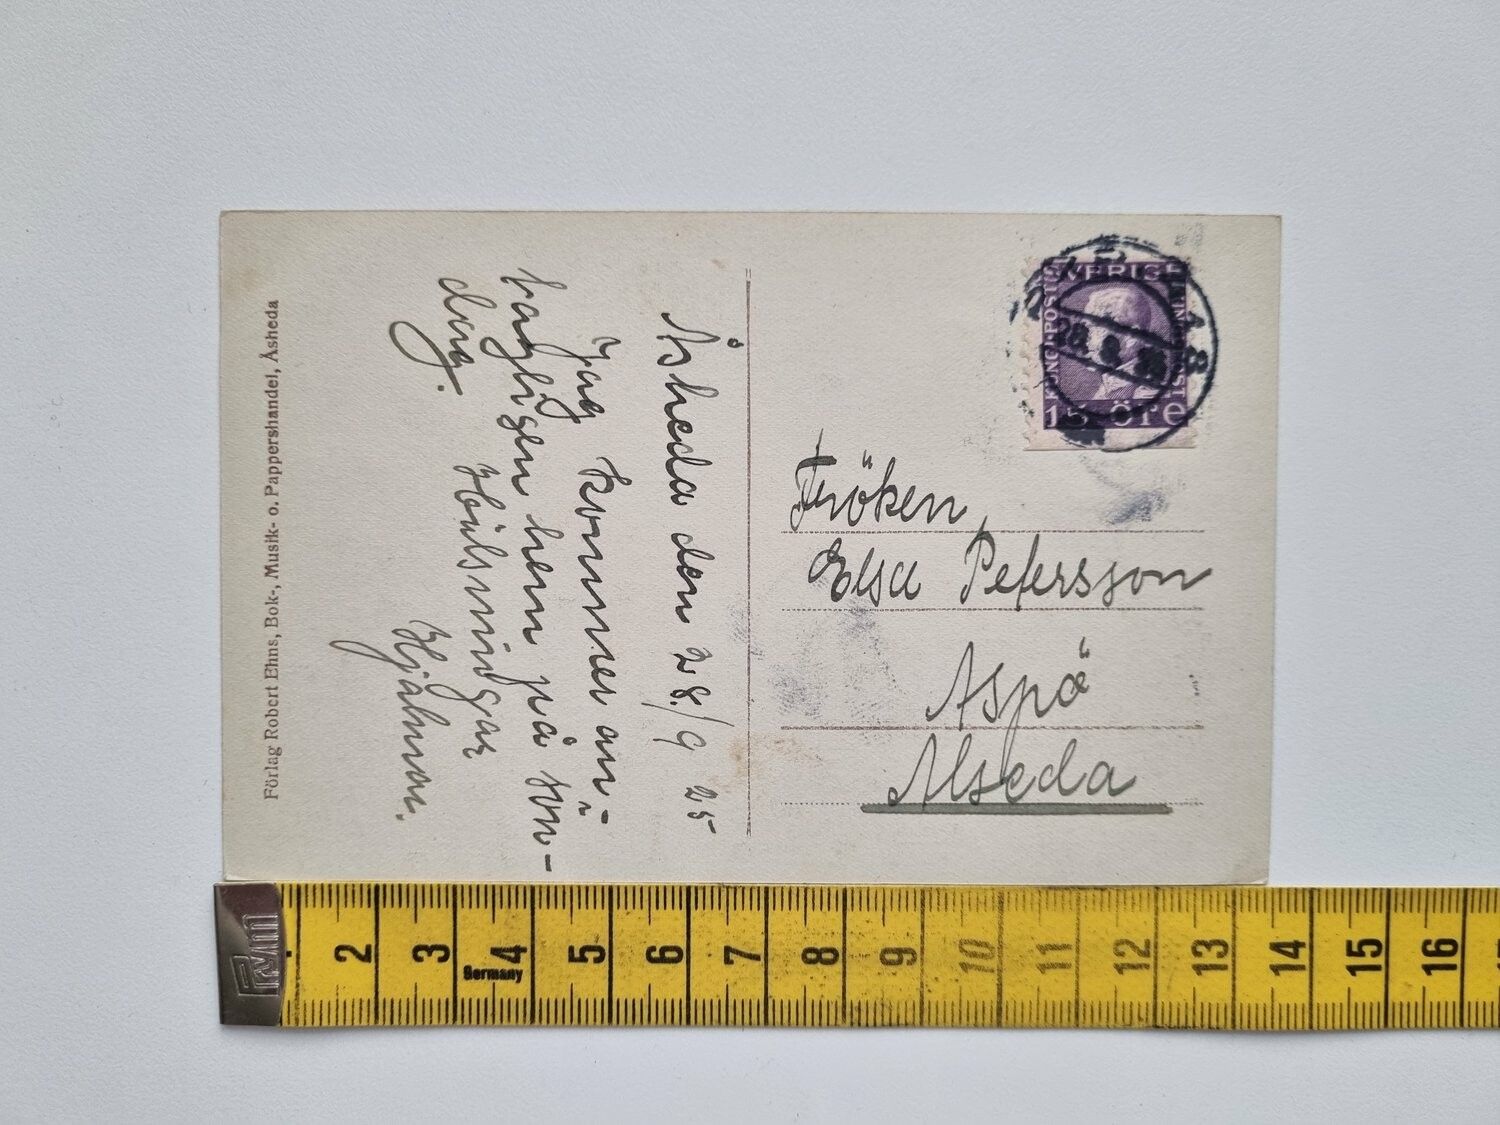 Förlag Robert Ehns, Bok-, Musik- o. Pappershandel, Åsheda
Åsheda den 28/9 25
Jag kommer an-
tagligen hem på sön-
dag.
Hälsningar
Hjalmar.
SVERIGE
15 öre
Fröken
Elsa Petersson
Aspö
Alseda
2 3 4 5 6 7 8 9 10 11 12 13 14 15 16
Germany